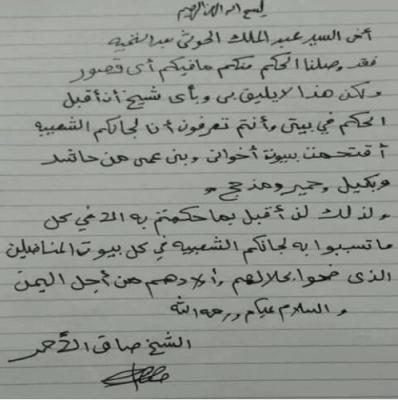 بسم الله الرحمن الرحيم
أخي السيد عبد الملك الحوثي بعد التحية
فقد وصلنا الحكم منكم مافيكم أي قصور
ولكن هذا لا يليق بي وبأي شيخ أن أقبل
الحكم في بيتي وأنتم تعرفون أن لجانكم الشعبيه
أقتحمت بيوت أخواني وبني عمي من حاشد
وبكيل وحمير ومذحج
ولذلك لن أقبل بما حكمتم به الا في كل
ما تسببوا به لجانكم الشعبيه في كل بيوت المناضلين
الذي ضحوا بحلالهم وأولادهم من أجل اليمن
والسلام عليكم ورحمة الله
الشيخ صادق الأحمر